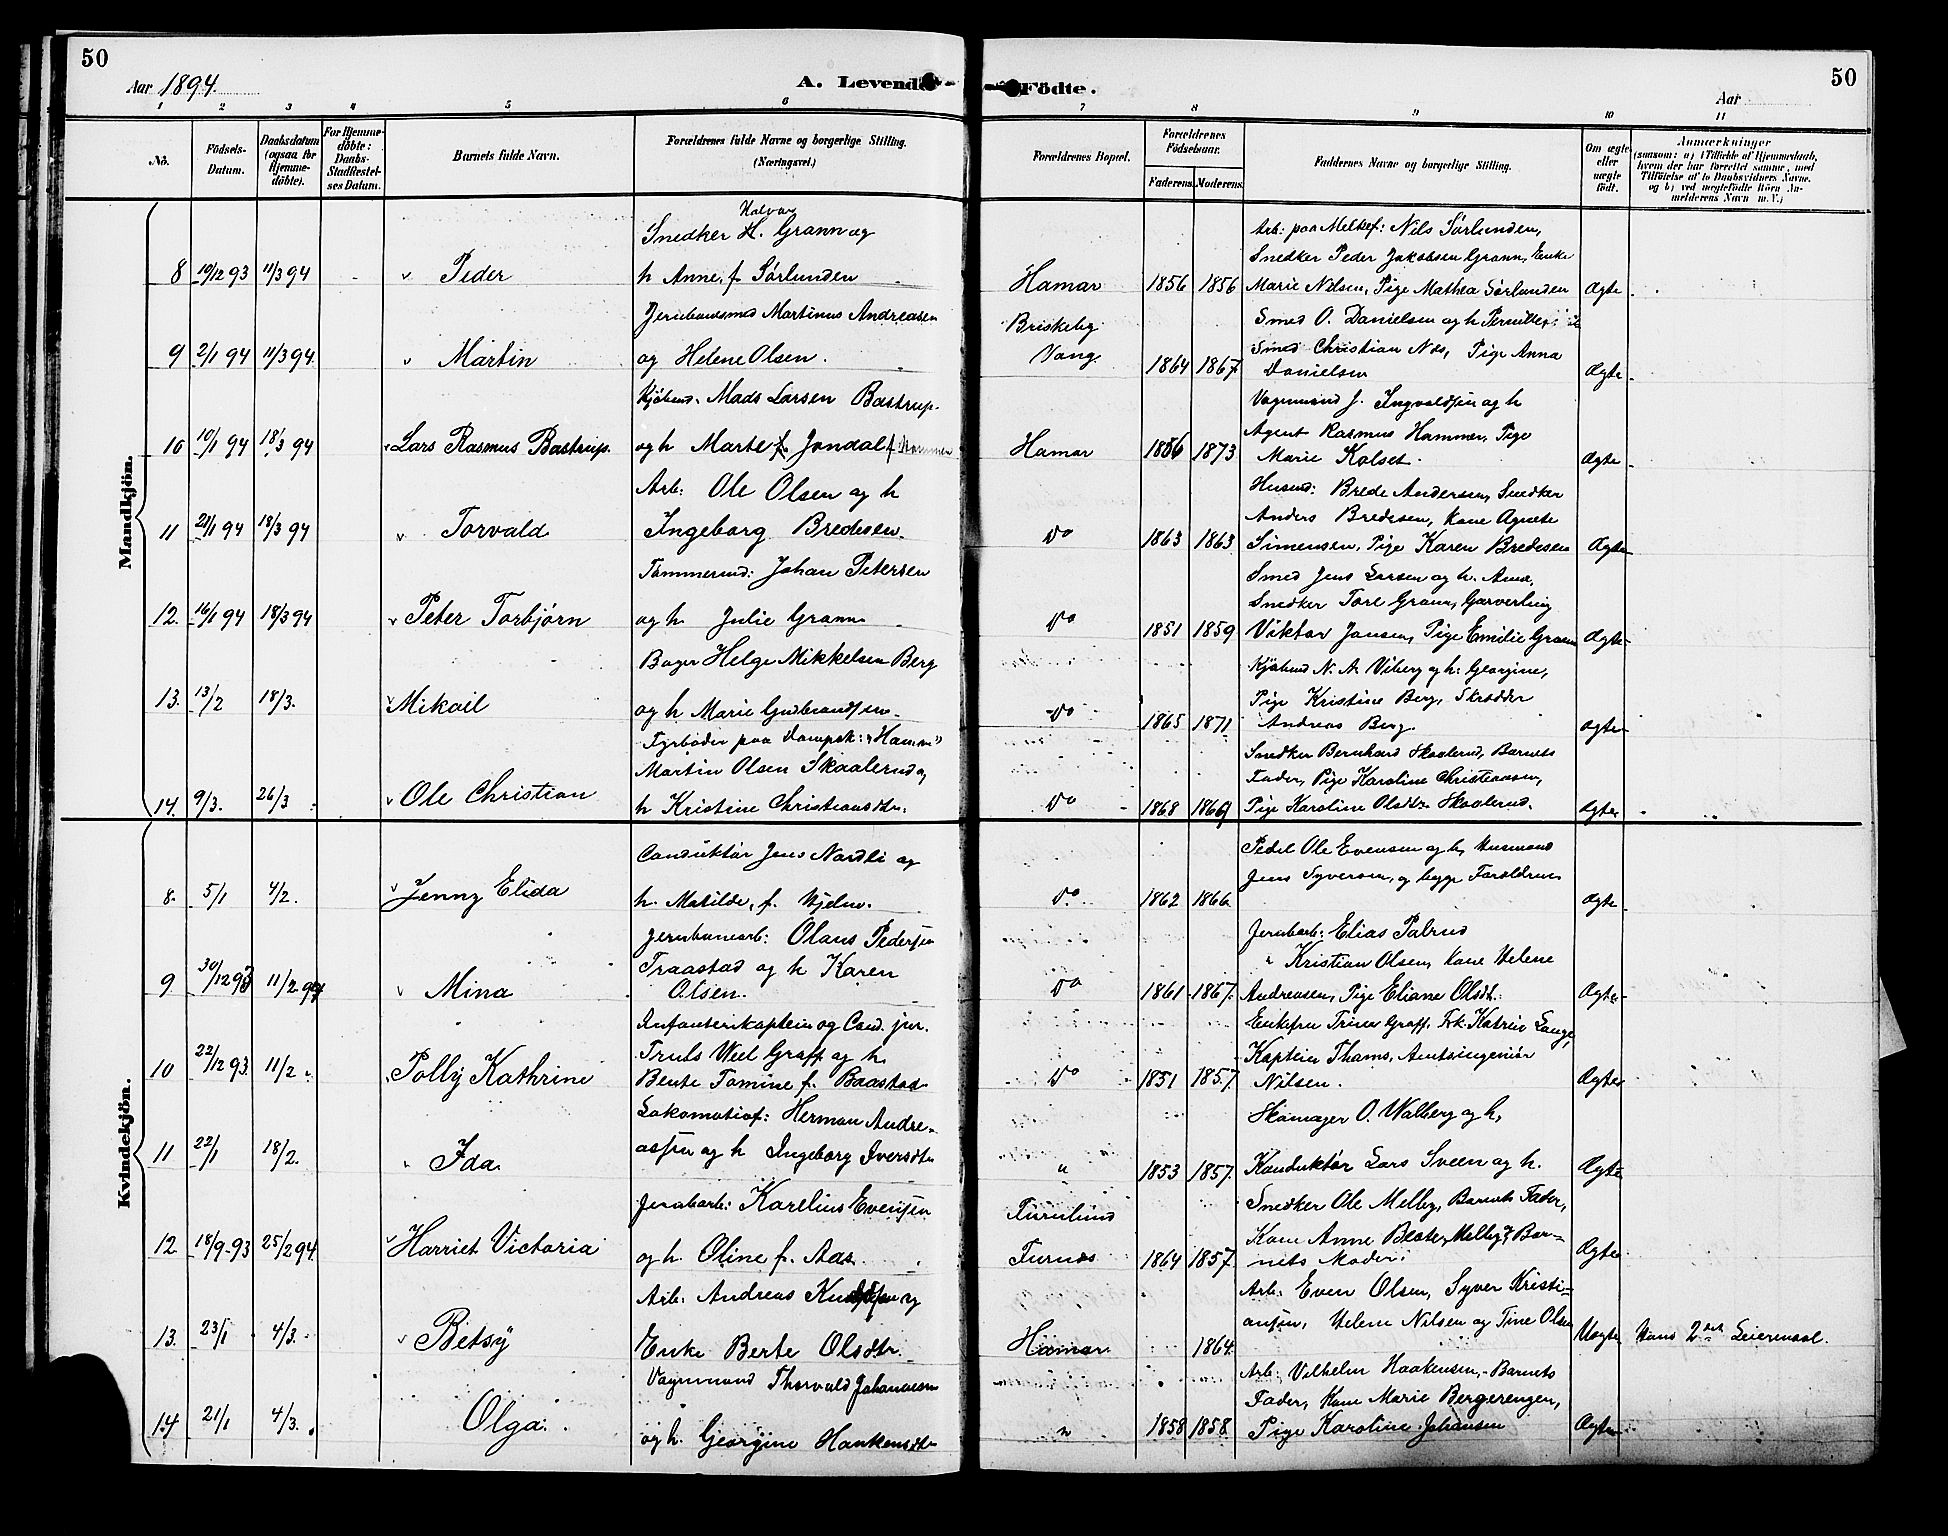 50
Aar 1894.
A. Levende
Födte.
50
Aar
1 2 3 4 5 6 7 8 9 10 11
No.
Födsels-Datum.
Daabsdatum (ogsaa for Hjemme-döbte).
For Hjemme-döbte: Daabs-Stadfæstel-ses Datum.
Barnets fulde Navn.
Forældrenes fulde Navne og borgerlige Stilling. (Næringsvei.)
Forældrenes Bopæl.
Forældrenes Födselsaar.
Faderens. Moderens.
Faddernes Navne og borgerlige Stilling.
Om ægte eller uægte födt.
Anmærkninger
(saasom: a) i Tilfælde af Hjemmedaab, hvem der har forrettet samme, med Tilföielse af to Daabsvidners Navne, og b) ved uægtefödte Börn An-melderens Navn m. V.)
Mandkjön.
Halvor
Snedker H. Grann og
8 19/12 93 11/3 94 Peder
h Anne, f. Sörlunden
Hamar 1856 1856
Arb: paa Melkef: Nils Sörlunden,
Snedker Peder Jakobsen Grann, Enke
Marie Nilsen, Pige Mathea Sörlunden
Ægte
Jernbanesmed Martinus Andreasen
9 2/1 94 11/3 94 Martin
og Helene Olsen.
Briskeby
Vang. 1864 1867
Smed O. Danielsen og h Pernille,
Smed Christian Næs, Pige Anna
Danielsen
Ægte
Kjöbmd. Mads Larsen Bastrup.
10 10/1 94 18/3 94 Lars Rasmus Bastrup.
og h Marte f. Jondal f. Hammer
Hamar 1856 1873
Vognmand J. Ingvaldsen og h
Agent Rasmus Hammer, Pige
Marie Kolset.
Ægte
Arb: Ole Olsen og h
11 21/1 94 18/3 94 Torvald
Ingeborg Bredesen.
Do 1863 1863
Husmd: Brede Andersen, Snedker
Anders Bredesen, Kone Agnete
Simensen, Pige Karen Bredesen
Ægte
Tömmermd: Johan Petersen
12. 16/1 94 18/3 94 Peter Torbjörn
og h Julie Grann
Do 1851 1859
Smed Jens Larsen og h. Anne,
Snedker Tore Grann, Garverling
Viktor Jansen, Pige Emilie Grann
Ægte
Bager Helge Mikkelsen Berg
13. 13/2 18/3. Mikael
og h Marie Gudbrandsen.
Do 1865 1871
Kjöbmd N. A. Viberg og h: Georgine,
Pige Kristine Berg, Skrædder
Andreas Berg.
Ægte
Fyrböder paa Dampsk: "Hamar"
Martin Olsen Skaalerud og
14. 9/3. 26/3 Ole Christian
h Kristine Christiansdtr.
Do 1868 1869
Snedker Bernhard Skaalerud, Barnets
Fader, Pige Karoline Christiansen,
Pige Karoline Olsdtr Skaalerud.
Ægte
Kvindekjön.
Conduktör Jens Nordli og
8. 5/1 4/2. Jenny Elida
h. Matilde, f. Hjelm.
Do 1862 1866
Pedel Ole Evensen og h, Husmand
Jens Syversen, og begge Forældrene
Ægte
Jernbanearb: Olaus Pedersen
9. 30/12 93 11/2 94 Mina
Traastad og h Karen
Olsen.
Do 1861 1867.
Jernbarb: Elias Palrud
" Kristian Olsen, Kone Helene
Andreasen, Pige Eliane Olsdt.
Ægte
Infanterikaptein og Cand. jur.
10 22/12 93. 11/2 Polly Kathrine
Truls Wiel Graff og h.
Bente Tomine f. Baastad
Do 1851 1857.
Enkefru Trine Graff, Frk. Katrine Lange,
Kaptein Thams, Amtsingeniör
Nilsen.
Ægte
Lokomotivf: Herman Andre-
11 22/1 18/2. Ida
assen og h Ingeborg Iversdtr
" 1853 1857.
Skomager O. Walberg og h,
Konduktör Lars Sveen og h.
Ægte
Jernbarb: Karelius Evensen
12 18/9-93 25/2 94. Harriet Victoria
og h Oline f. Aas
Furulund
Furnæs 1864 1857.
Snedker Ole Melby, Barnets Fader,
Kone Anne Beate Melby, Bar-
nets Moder.
Ægte
Arb: Andreas Knudsen og
13. 23/1 4/3. Betsy
Enke Berte Olsdtr.
Hamar 1864.
Arb: Even Olsen, Syver Kristi-
ansen, Helene Nilsen og Tine Olsen
Uægte Hans 2det Leiermaal.
Vognmand Thorvald Johannesen
14 21/1 4/3. Olga.
og h. Georgine Haakensdtr
" 1858 1858.
Arb: Vilhelm Haakensen, Barnets
Fader, Kone Marie Bergerengen,
Pige Karoline Johansen
Ægte